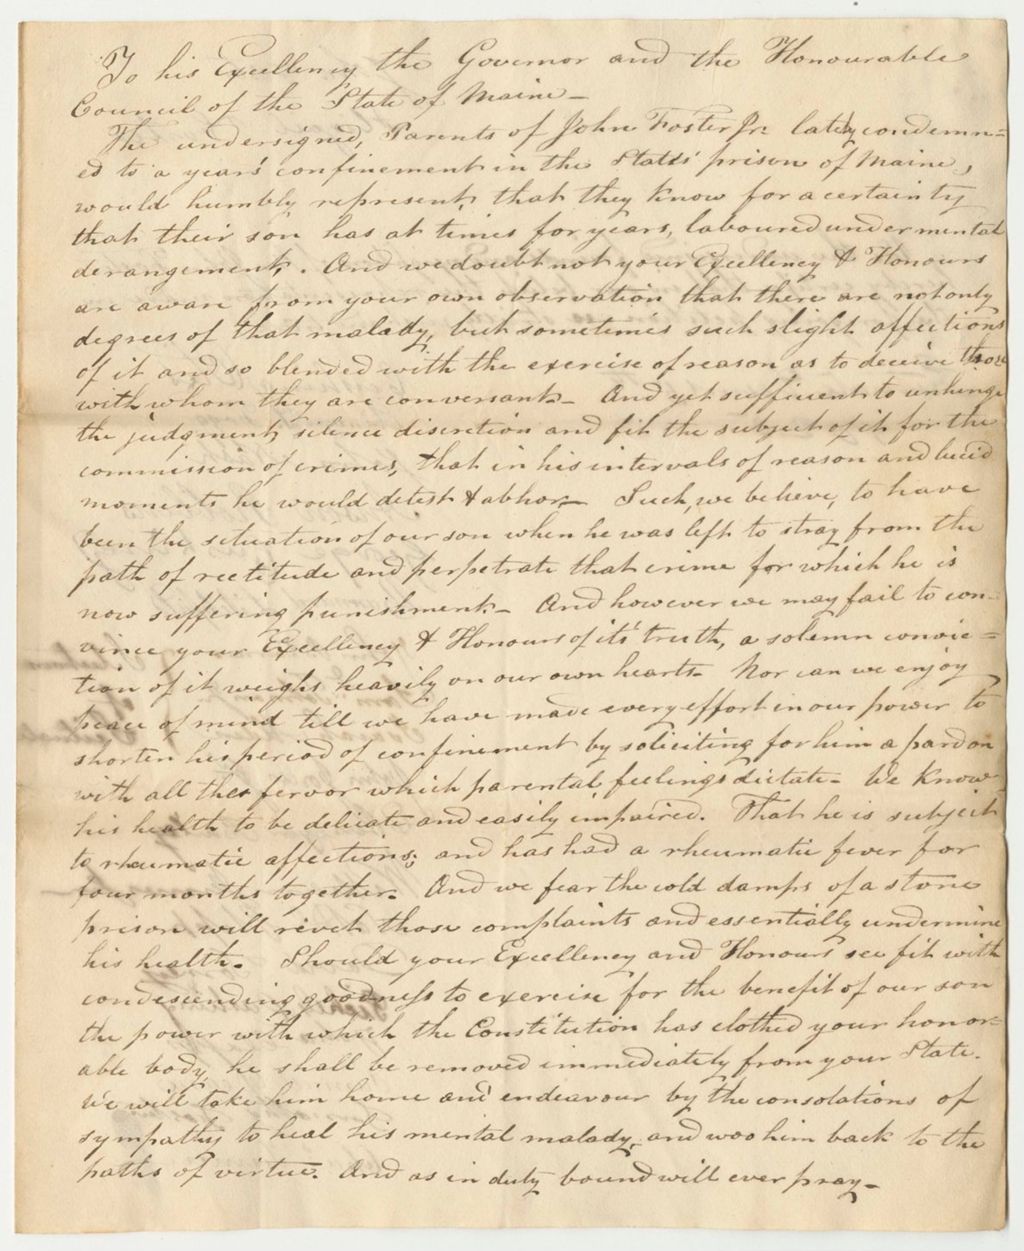 To his Excellency the Governor and the Honourable
Council of the State of Maine –
The undersigned, Parents of John Foster Jr. lately condemn=
ed to a year's confinement in the States' prison of Maine,
would humbly represent, that they know for a certainty
that their son has at times for years, laboured under mental
derangement. And we doubt not your Excellency & Honours
are aware from your own observation that there are not only
degrees of that malady, but sometimes such slight affections
of it and so blended with the exercise of reason as to deceive those
with whom they are conversant – And yet sufficient to unhinge
the judgment, silence discretion and fit the subject of it for the
commission of crimes, that in his intervals of reason and lucid
moments he would detest & abhor – Such, we believe, to have
been the situation of our son when he was left to stray from the
path of rectitude and perpetrate that crime for which he is
now suffering punishment – And however we may fail to con-
vince your Excellency & Honours of it's truth, a solemn convic=
tion of it weighs heavily on our own hearts. Nor can we enjoy
peace of mind till we have made every effort in our power to
shorten his period of confinement by soliciting for him a pardon
with all the fervor which parental feelings dictate – We know
his health to be delicate and easily impaired. That he is subject
to rheumatic affections; and has had a rheumatic fever for
four months together. And we fear the cold damps of a stone
prison will rivet those complaints and essentially undermine
his health. Should your Excellency and Honours see fit with
condescending goodness to exercise for the benefit of our son
the power with which the Constitution has clothed your honor=
able body, he shall be removed immediately from your State.
We will take him home and endeavour by the consolations of
sympathy to heal his mental malady, and woo him back to the
paths of virtue. And as in duty bound will ever pray –